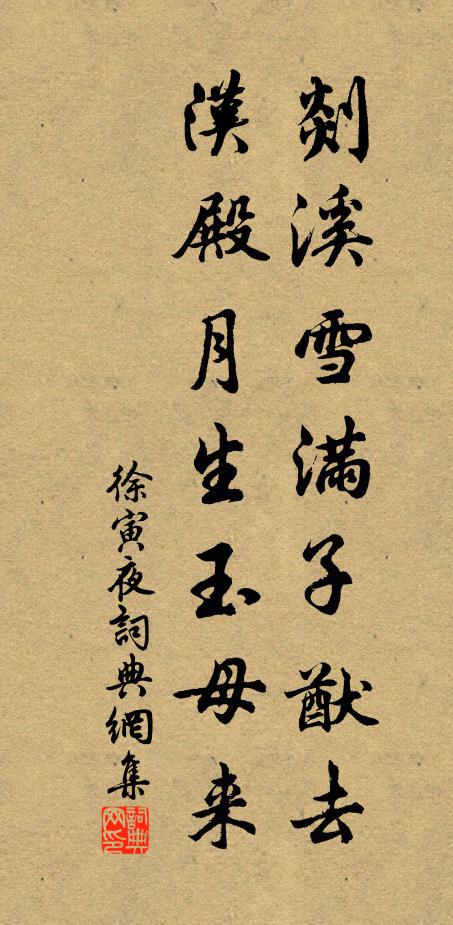 剡溪雪滿子猷去
漢殿月生玉母来
徐寅夜詞典網集
詞典网印